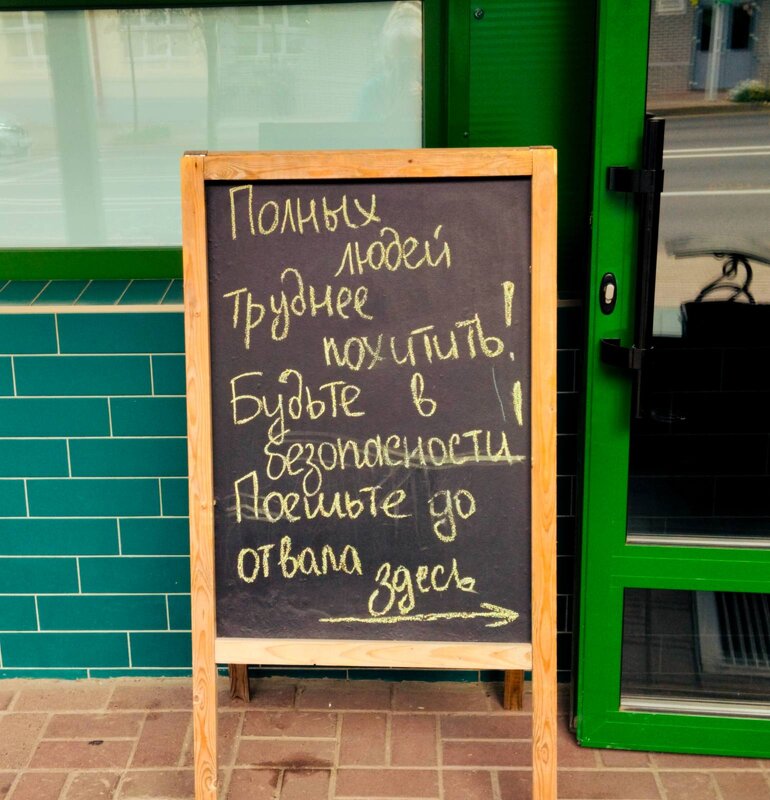 Полных
людей
труднее
похитить!
Будьте в
безопасности!
Поешьте до
отвала
здесь